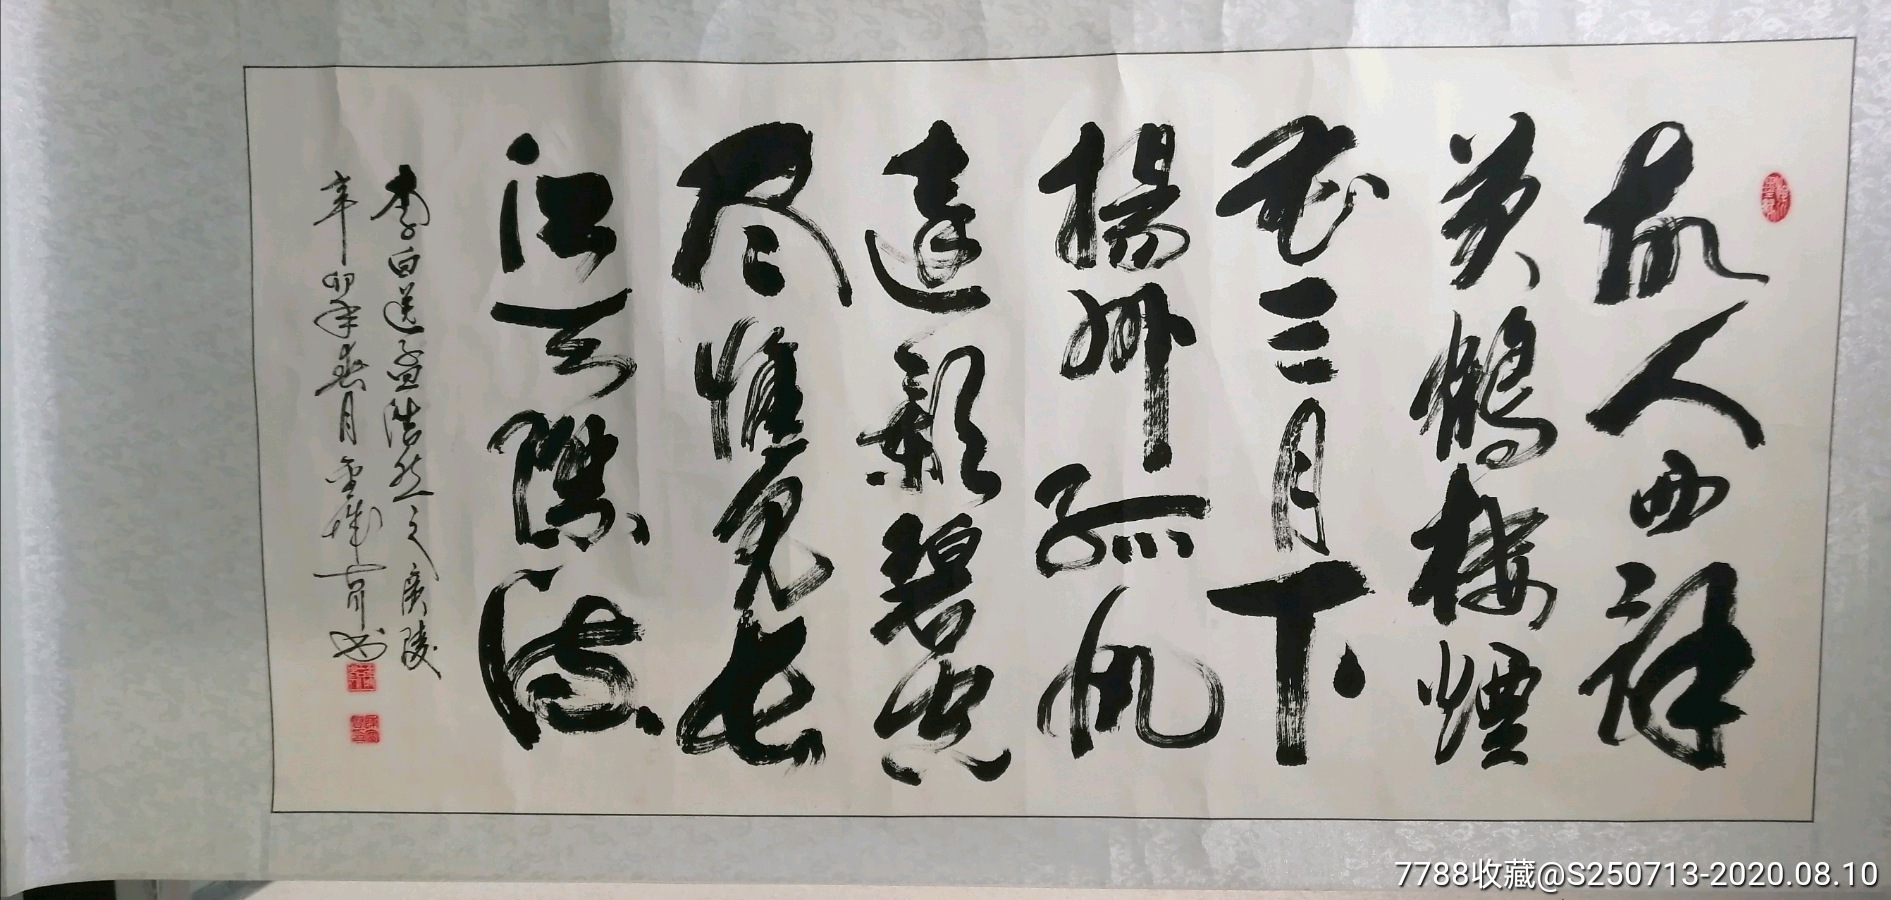 故人西辞
黄鹤楼煙
花三月下
揚州孤帆
遠影碧空
尽惟见长
江天際流
李白送孟浩然之廣陵
辛卯年春月
7788收藏@S250713-2020.08.10